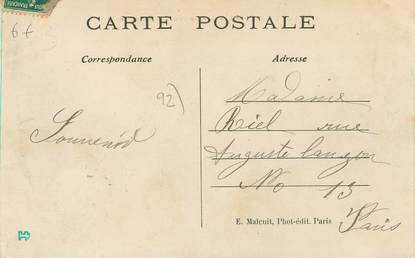 CARTE POSTALE
6f
Correspondance
Adresse
92)
Madame
Riel rue
Souvenir
Auguste
No 13
E. Malcuit, Phot-édit. Paris
Paris